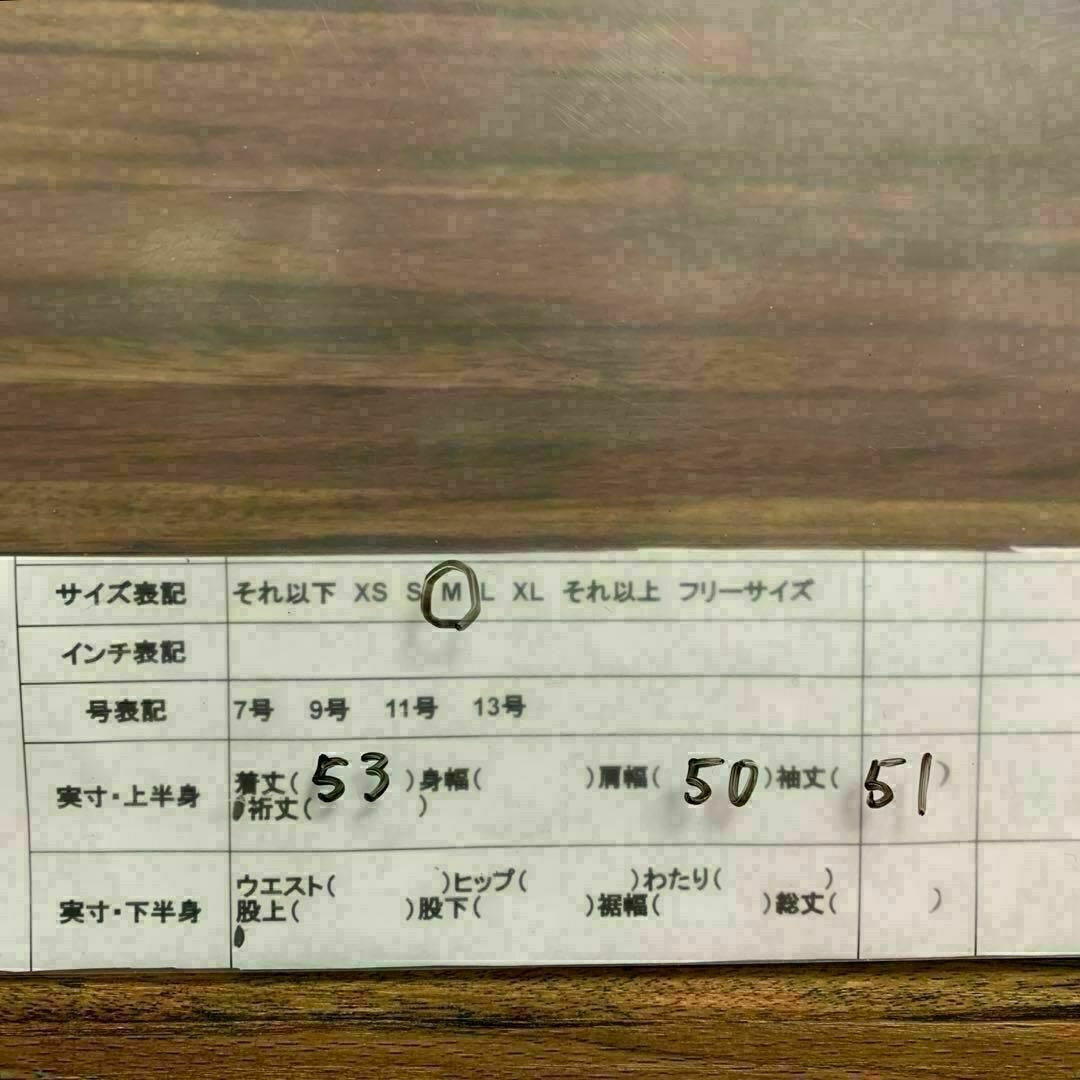 サイズ表記 それ以下 XS S M L XL それ以上 フリーサイズ
インチ表記
号表記 7号 9号 11号 13号
実寸・上半身 着丈( 53 )身幅( )肩幅( 50 )袖丈( 51 )
裄丈( )
実寸・下半身 ウエスト( )ヒップ( )わたり( )
股上( )股下( )裾幅( )総丈( )